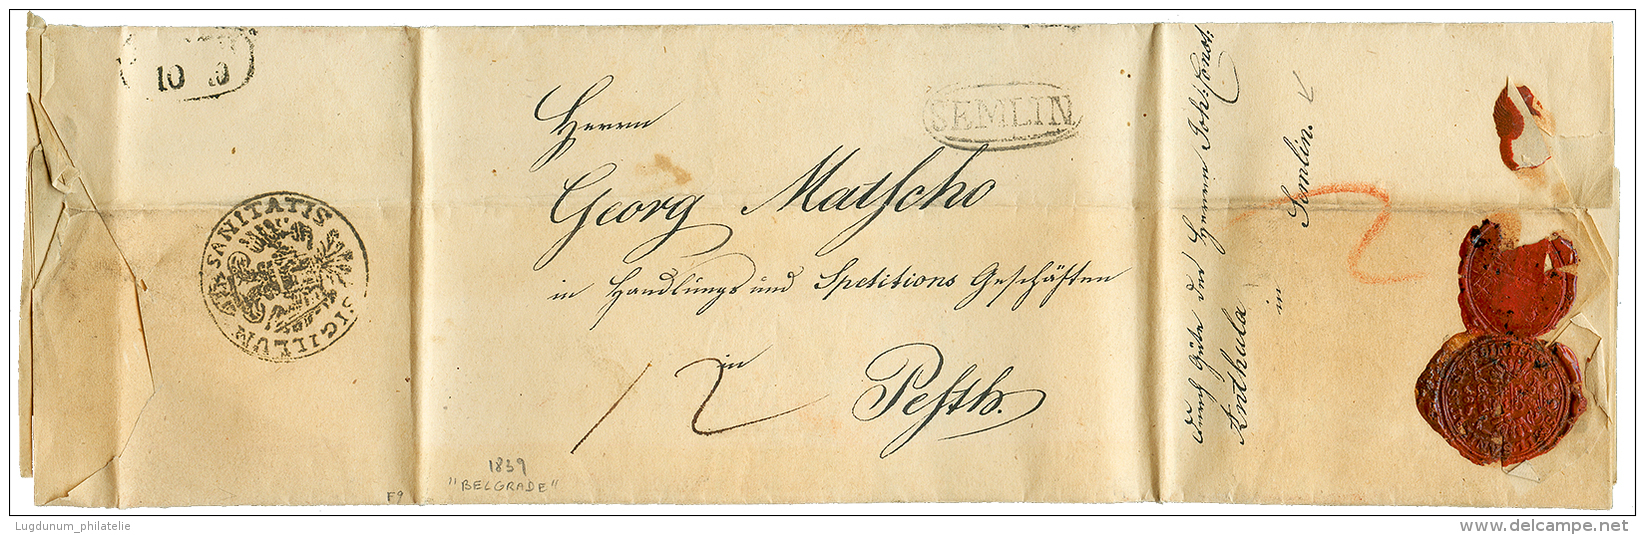 10
SIGILLUM SANITATIS
SEMLIN
Herrn
Georg Matscho
in Handlungs und Spetitions Geschäften
in
12
Pesth.
1839
"BELGRADE"
F9
Durch Güte des Herrn Joh: Const:
Anthula
in
Semlin.
2
Lugdunum_philatelie
www.delcampe.net